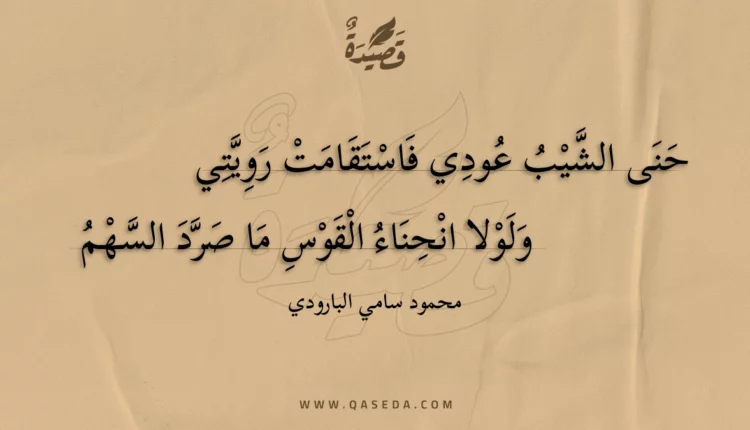 قَصِيدَةٌ
حَنَى الشَّيْبُ عُودِي فَاسْتَقَامَتْ رَوِيَّتِي
وَلَوْلا انْحِنَاءُ الْقَوْسِ مَا صَرَّدَ السَّهْمُ
محمود سامي البارودي
WWW.QASEDA.COM